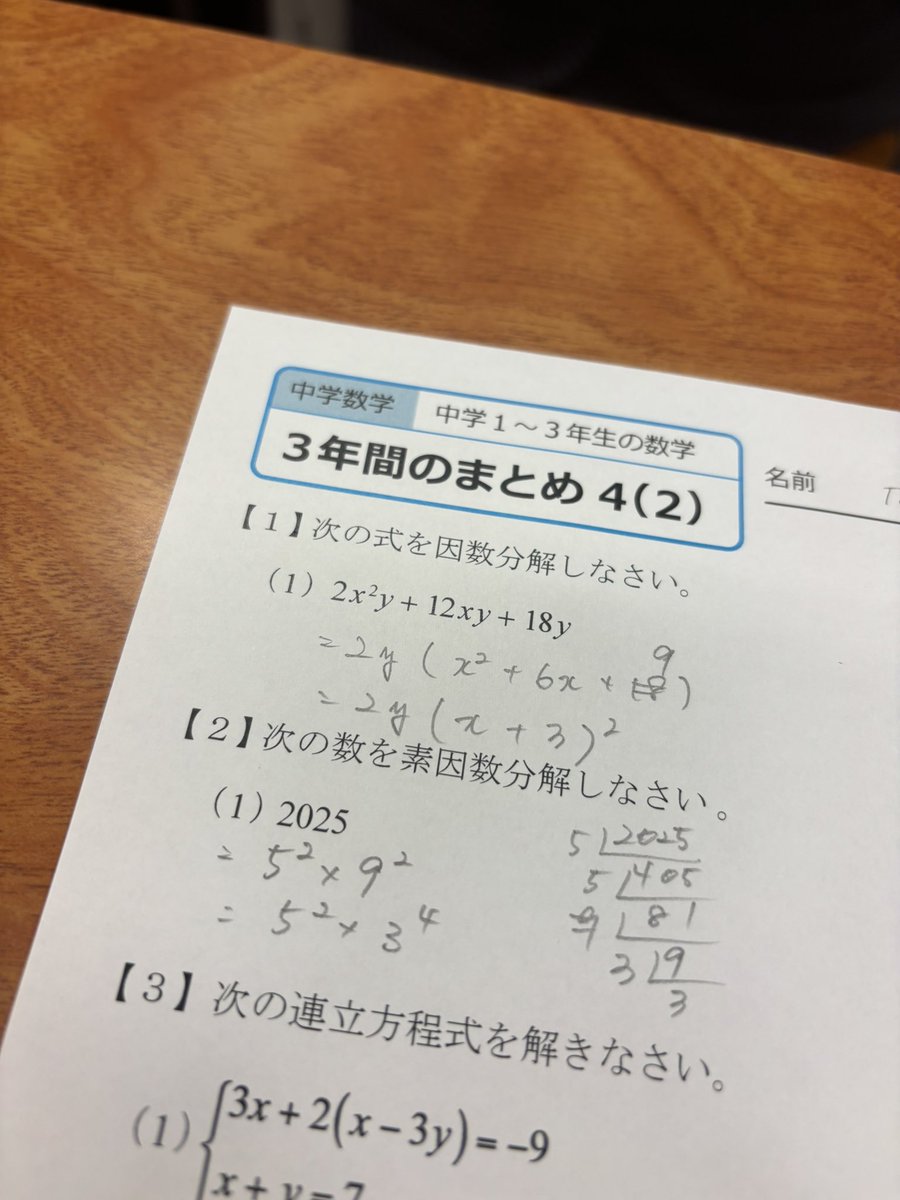 中学数学 中学1～3年生の数学
3年間のまとめ 4(2)
名前
【1】次の式を因数分解しなさい。
(1) 2x²y + 12xy + 18y
= 2y ( x² + 6x + 9 )
= 2y ( x + 3 )²
【2】次の数を素因数分解しなさい。
(1) 2025
= 5² × 9²
= 5² × 3⁴
5 2025
5 405
9 81
3 9
3
【3】次の連立方程式を解きなさい。
(1) 3x + 2(x − 3y) = −9
x + y = 7